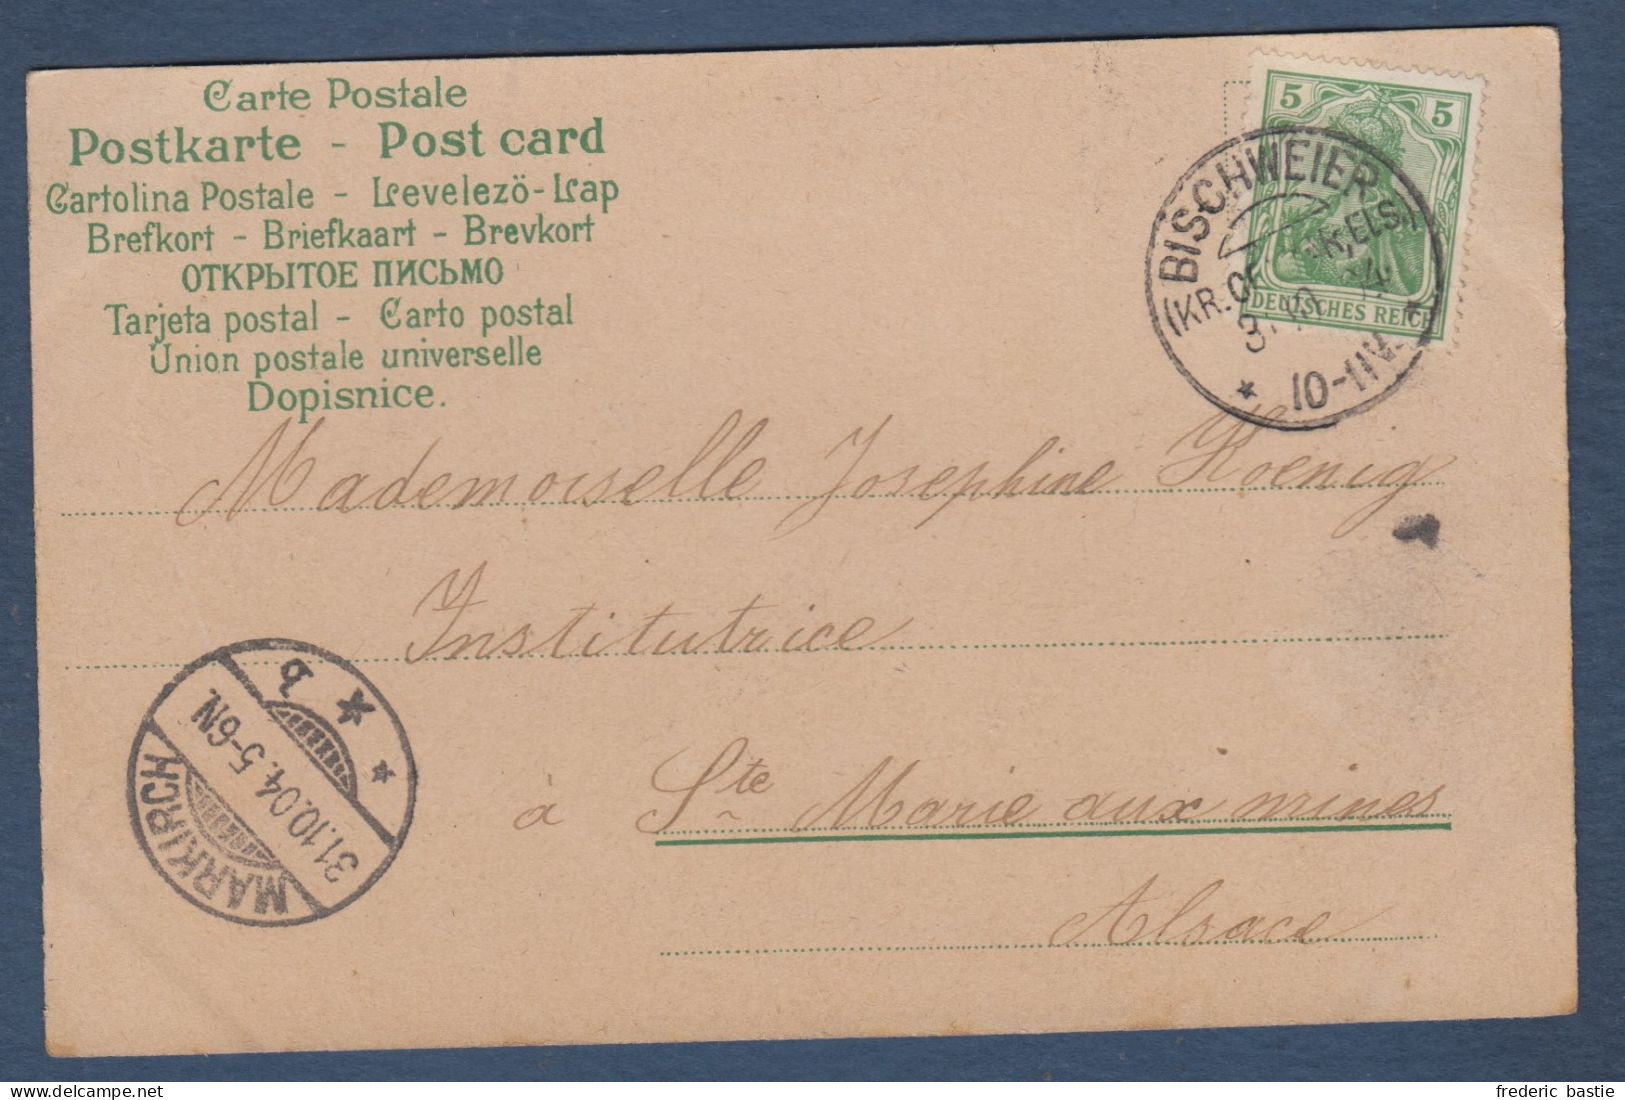 Carte Postale
Postkarte - Post card
Cartolina Postale - Levelezö-Lap
Brefkort - Briefkaart - Brevkort
ОТКРЫТОЕ ПИСЬМО
Tarjeta postal - Carto postal
Union postale universelle
Dopisnice.
5 5
DEUTSCHES REICH
BISCHWEIER
10-11V.
Mademoiselle Josephine Koenig
Institutrice
à Ste Marie aux mines
Alsace
MARKIRCH
31.10.04. 5-6N.
* b *
frederic bastie